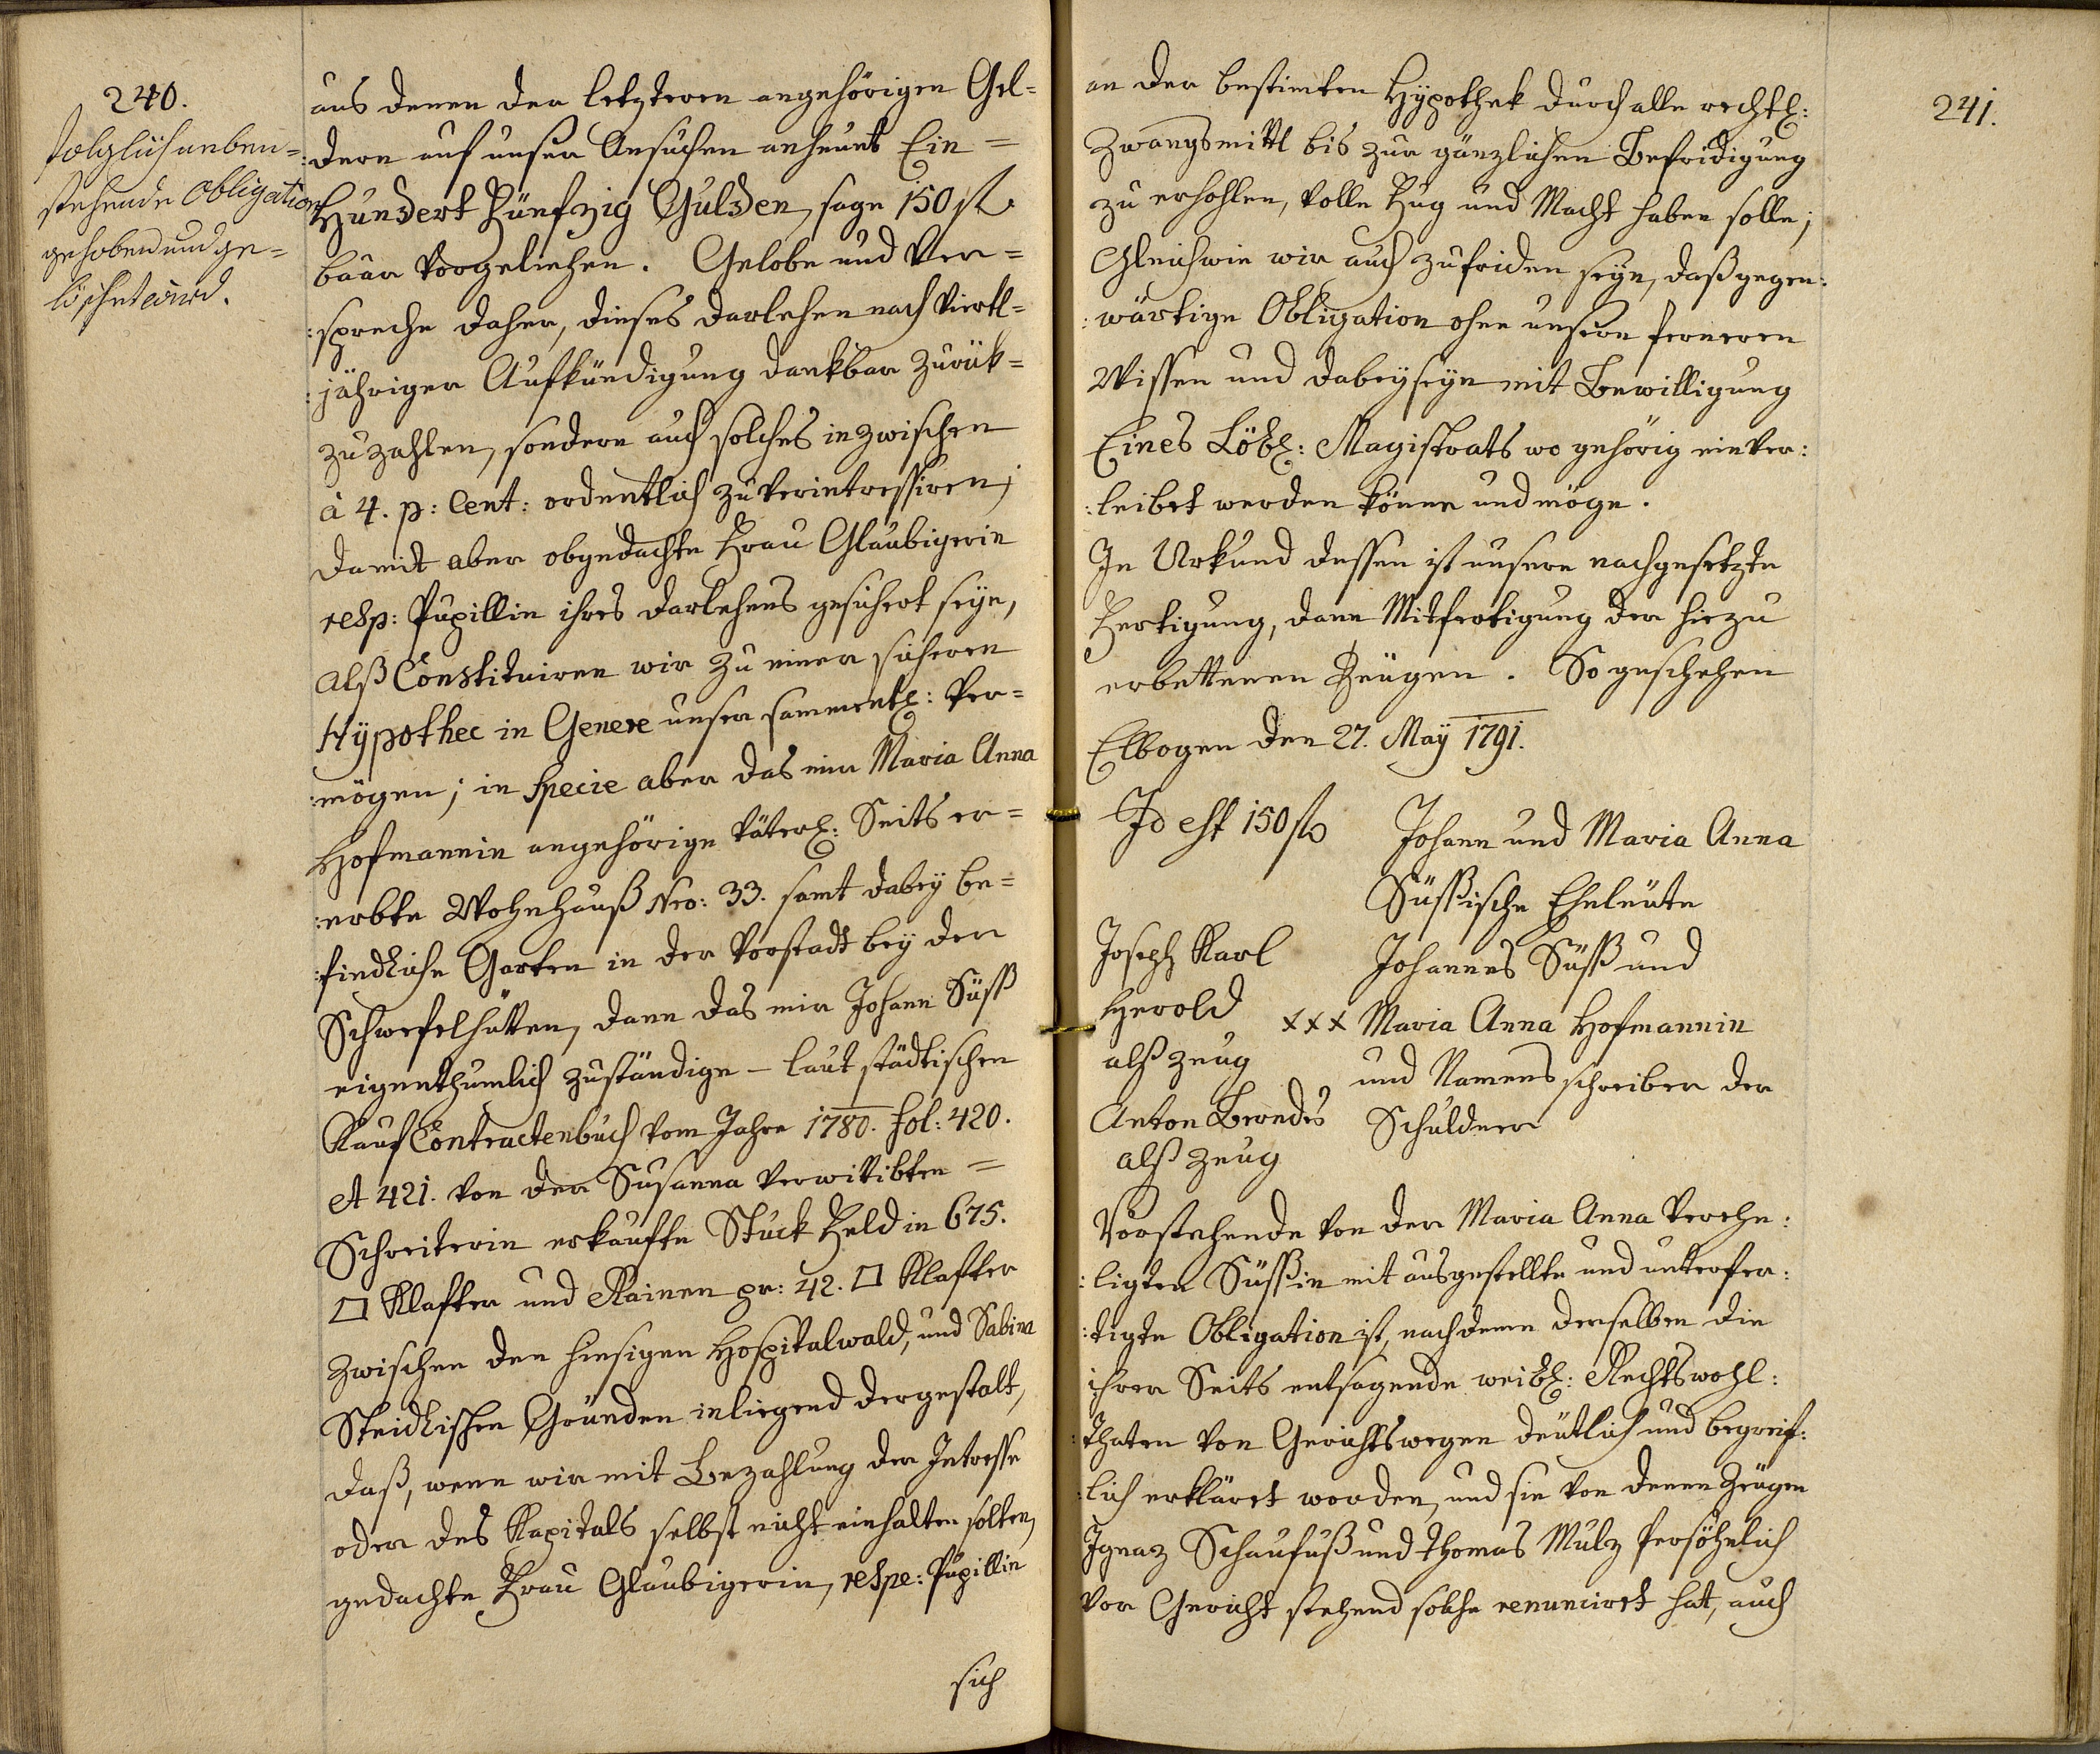 240.
folglich anben=
stehende Obligation
gehoben und ge=
löschet wird.
aus denen der letzteren angehörigen Gel=
:dern auf unser Ansuchen anheunt Ein=
Hundert Fünfzig Gulden, sage 150 fl.
baar vorgeliehen. Gelobe und Ver=
:spreche daher, dieses Darlehen nach viertl=
:jähriger Aufkündigung dankbar zurük=
zuzahlen, sondern auch solches inzwischen
à 4. p: Cent: ordentlich zu verintressiren;
Damit aber obgedachte Frau Glaubigerin
resp: Pupillin ihres Darlehens gesichert seÿe,
alß Constituiren wir zu einer sicheren
Hÿpothec in Genere unser sammentl: Ver=
:mögen; in Specie aber das mir Maria Anna
Hofmannin angehörige väterl: Seits er=
:erbte Wohnhauß Nro: 33. samt dabeÿ be=
:findliche Garten in der Vorstadt beÿ der
Schwefelhütten, dann das mir Johann Süß
eigenthumlich zuständige – laut städtischen
Kauf Contractenbuch vom Jahre 1780. fol: 420.
et 421. von der Susanna verwittibten=
Schreiterin erkaufte Stuck Feld in 675.
□ Klafter und Rainen pr: 42. □ Klafter
zwischen den hiesigen Hospitalwald, und Sabina
Steidlischen Gründen inliegend dergestalt,
daß, wenn wir mit Bezahlung der Intresse
oder des Kapitals selbst nicht einhalten solten,
gedachte Frau Glaubigerin, respe: Pupillin
sich
241.
an der bestimten Hÿpothek durch alle rechtl:
Zwangsmittl bis zur gänzlichen Befridigung
zu erhohlen, volle Fug und Macht haben solle;
Gleichwie wir auch zufriden seÿn, daß gegen:
:wärtige Obligation ohne unsern ferneren
Wissen und Dabeÿseÿn mit Bewilligung
Eines Löbl: Magistrats wo gehörig einver:
:leibet werden könne und möge.
In Urkund dessen ist unsere nachgesetzte
Fertigung, dann Mitfertigung der hiezu
erbettenen Zeugen. So geschehen
Elbogen den 27. Maÿ 1791.
Id est 150 fl.
Johann und Maria Anna
Süßische Eheleute
Joseph Karl
Herold
alß Zeug
Anton Berndes
alß Zeug
Johannes Süß und
xxx Maria Anna Hofmannin
und Namensschreiber der
Schuldner
Vorstehende von der Maria Anna verehe:
:ligten Süßin mit ausgestellte und unterfer:
:tigte Obligation ist, nachdeme derselben die
ihrer Seits entsagende weibl: Rechtswohl:
:thaten von Gerichtswegen deutlich und begreif:
:lich erkläret worden, und sie von denen Zeugen
Ignaz Schaufuß und Thomas Mulz persöhnlich
vor Gericht stehend solche renunciret hat, auch